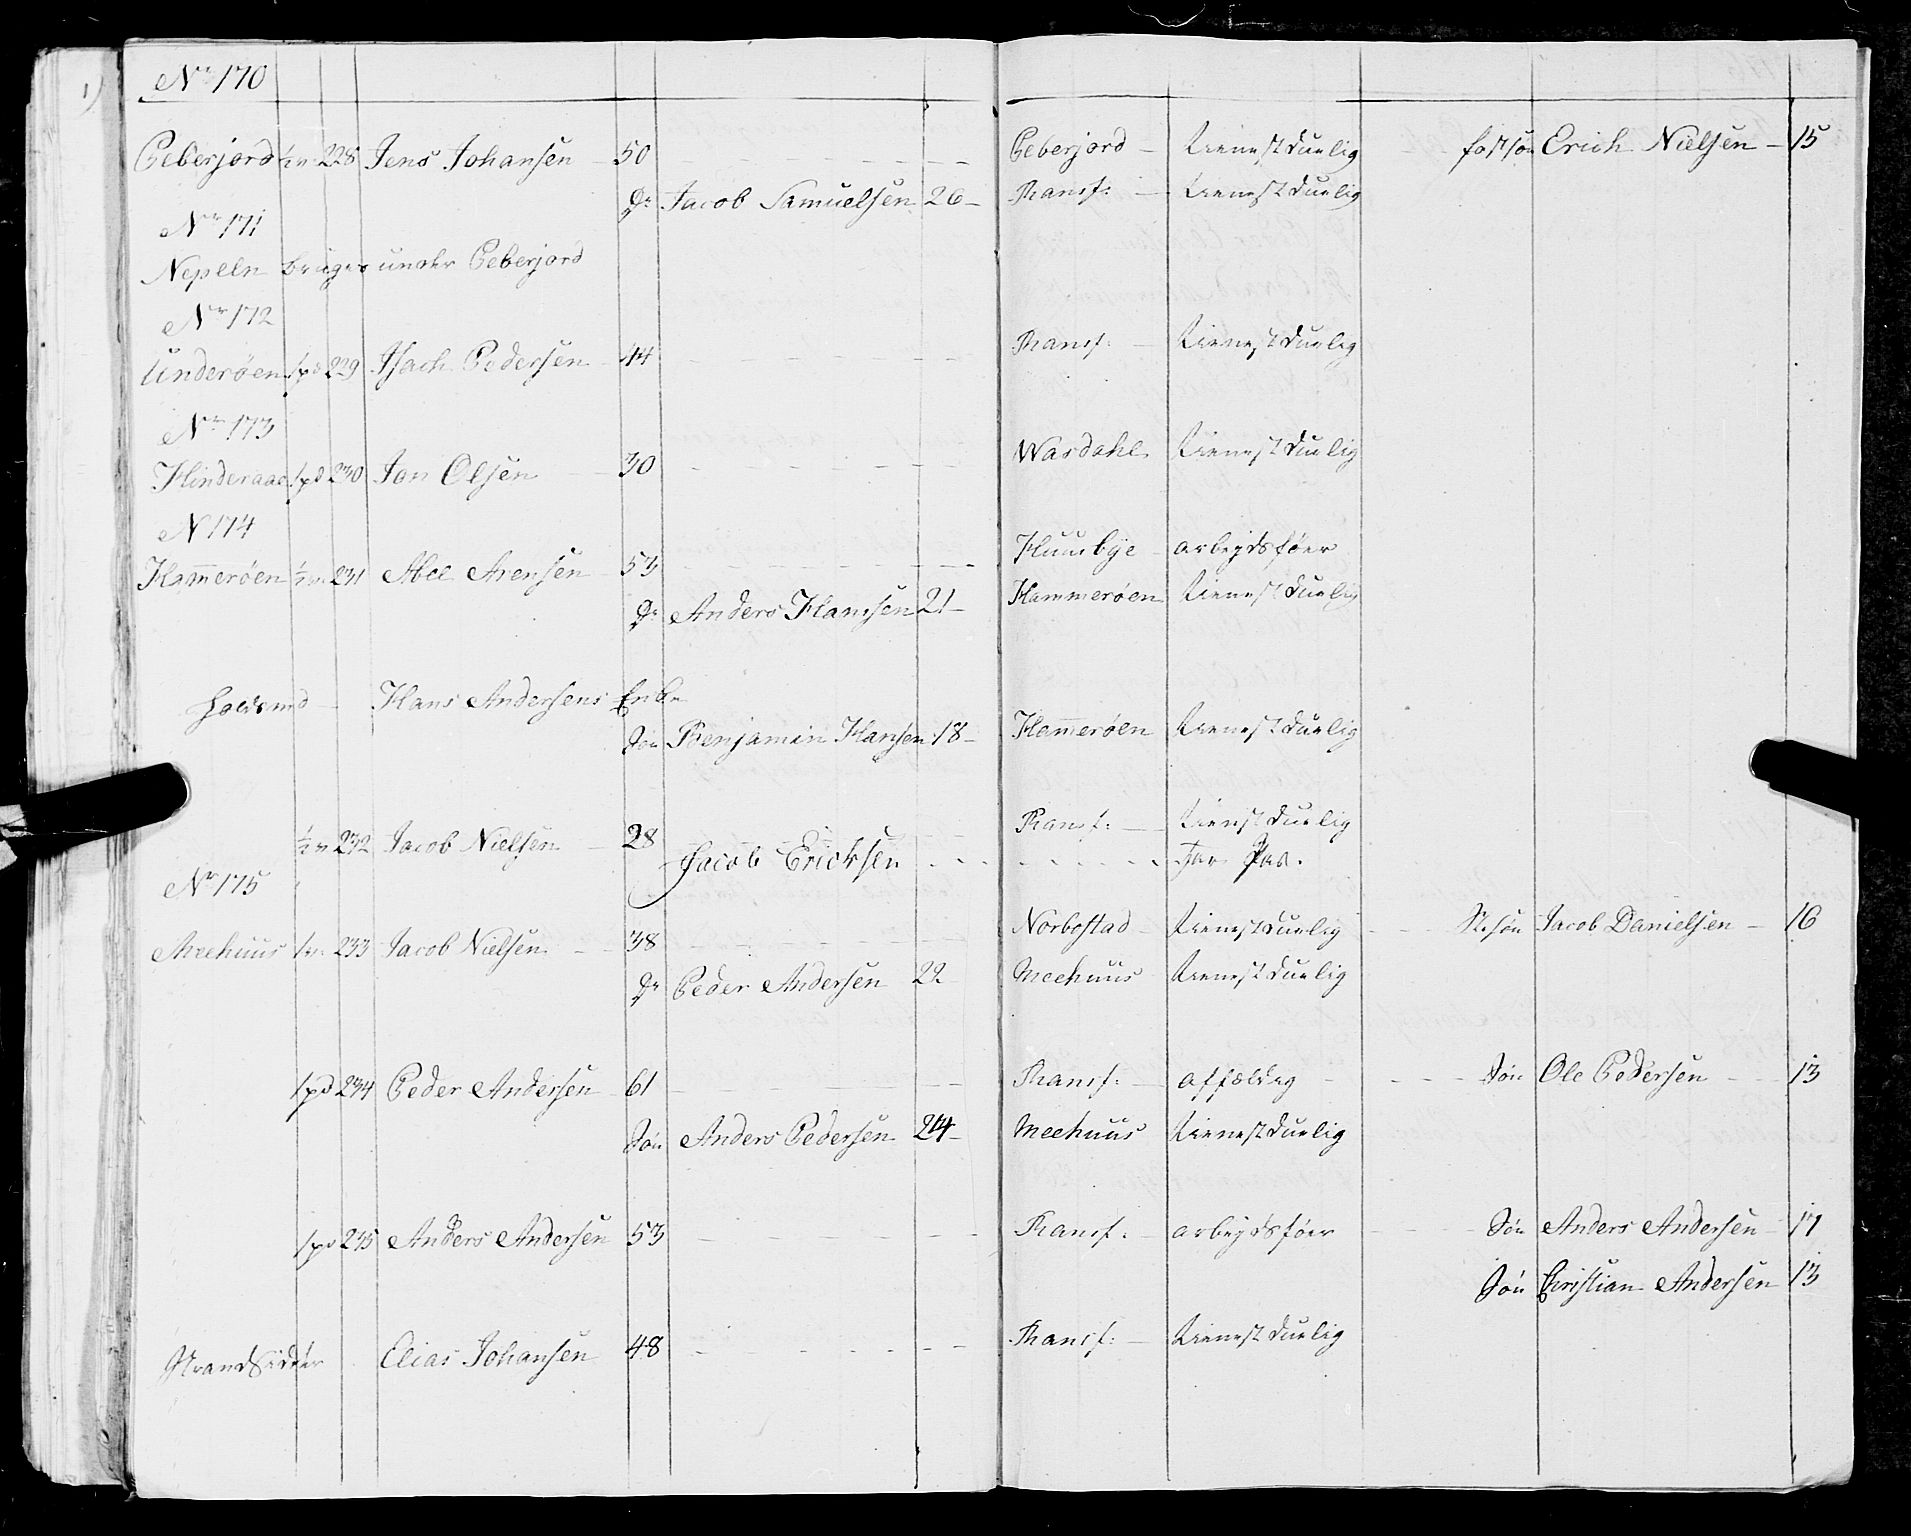 1)
No 170
Peberjord ½ v 228 Jens Johansen 50 Peberjord tienestduelig fostsøn Erich Nielsen 15
Dr Jacob Samuelsen 26 Transf: tienestduelig
Nr 171
Nepeln bruges under Peberjord
Nr 172
Underøen 1 pd 229 Isach Pedersen 44 Transf: tienestduelig
Nr 173
Hinderaae 1 pd 230 Jon Olsen 30 Wasdahl tienestduelig
N 174
Ham̄erøen ½ v 231 Abel Arensen 53 Huusbye arbejdsføer
Dr Anders Hansen 21 Hammerøen tienestduelig
Hans Andersens Enke
Søn Benjamin Hansen 18 Ham̄erøen tienestduelig
½ v 232 Jacob Nielsen 28 Transf: tienstduelig
Jacob Ericksen har Pas.
Nr 175
Meehuus 1 v 233 Jacob Nielsen 38 Norbostad tienestduelig St.søn Jacob Danielsen 16
Dr Peder Andersen 22 Meehuus tienestduelig
1 pd 234 Peder Andersen 61 Transf: affældig Søn Ole Pedersen 13
Søn Anders Pedersen 24 Meehuus tienestduelig
1 pd 235 Anders Andersen 53 Transf: arbejdsføer Søn Anders Andersen 17
Søn Christian Andersen 13
Strandsidder Elias Johansen 48 Transf: tienestduelig